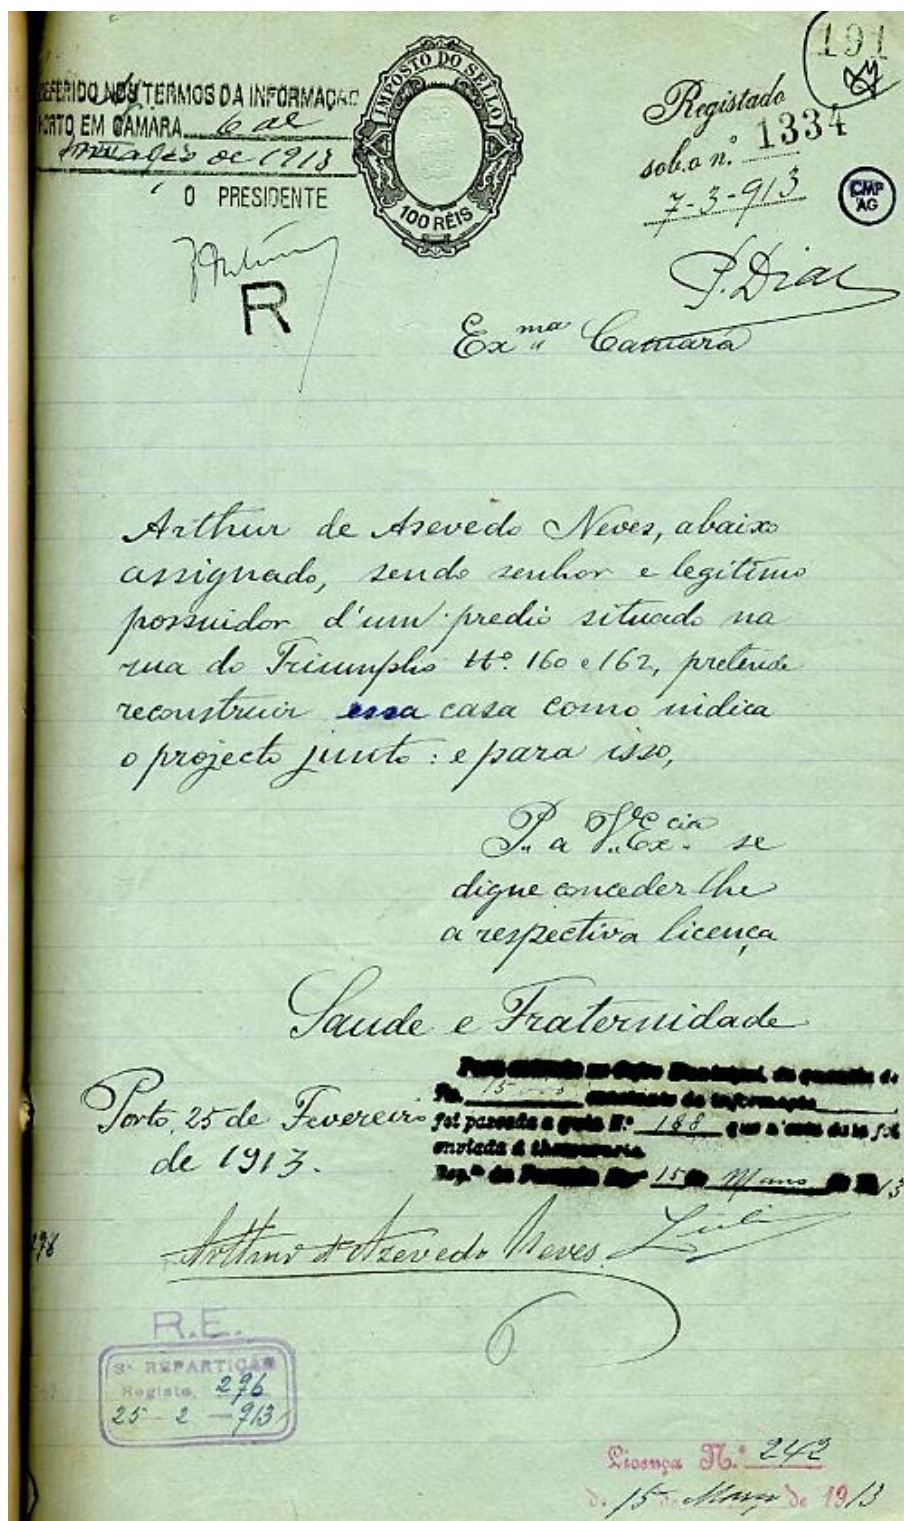 191
DEFERIDO NOS TERMOS DA INFORMAÇÃO
PORTO EM CAMARA 6 de
Março de 1913
O PRESIDENTE
R
IMPOSTO DO SELLO
100 RÉIS
Registado
sob.o n.º 1334
7-3-913
CMP
AG
P. Dias
Exma Camara
Arthur de Asevedo Neves, abaixo
assignado, sendo senhor e legitimo
possuidor d'um predio situado na
rua do Triumpho Nº. 160 e 162, pretende
reconstruir essa casa como indica
o projecto junto: e para isso,
P. a V.Excia se
digne conceder lhe
a respectiva licença
Saude e Fraternidade
Porto, 25 de Fevereiro
de 1913.
Para entrada no Cofre Municipal, da quantia de
Rs. 15 constante da informação
foi passada a guia N.º 188 que n'esta data foi
enviada á thesouraria.
Rep.ão da Fazenda Mp.al 15 de Março de 1913
Arthur d'Azevedo Neves
296
R.E.
3ª REPARTIÇÃO
Registo 296
25-2-913
Licença N.º 242
de 15 de Março de 1913